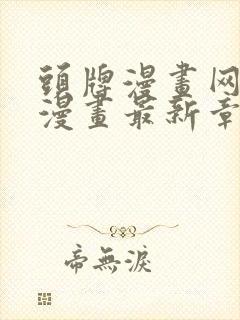 頭牌漫畫网
漫畫最新章
帝無淚